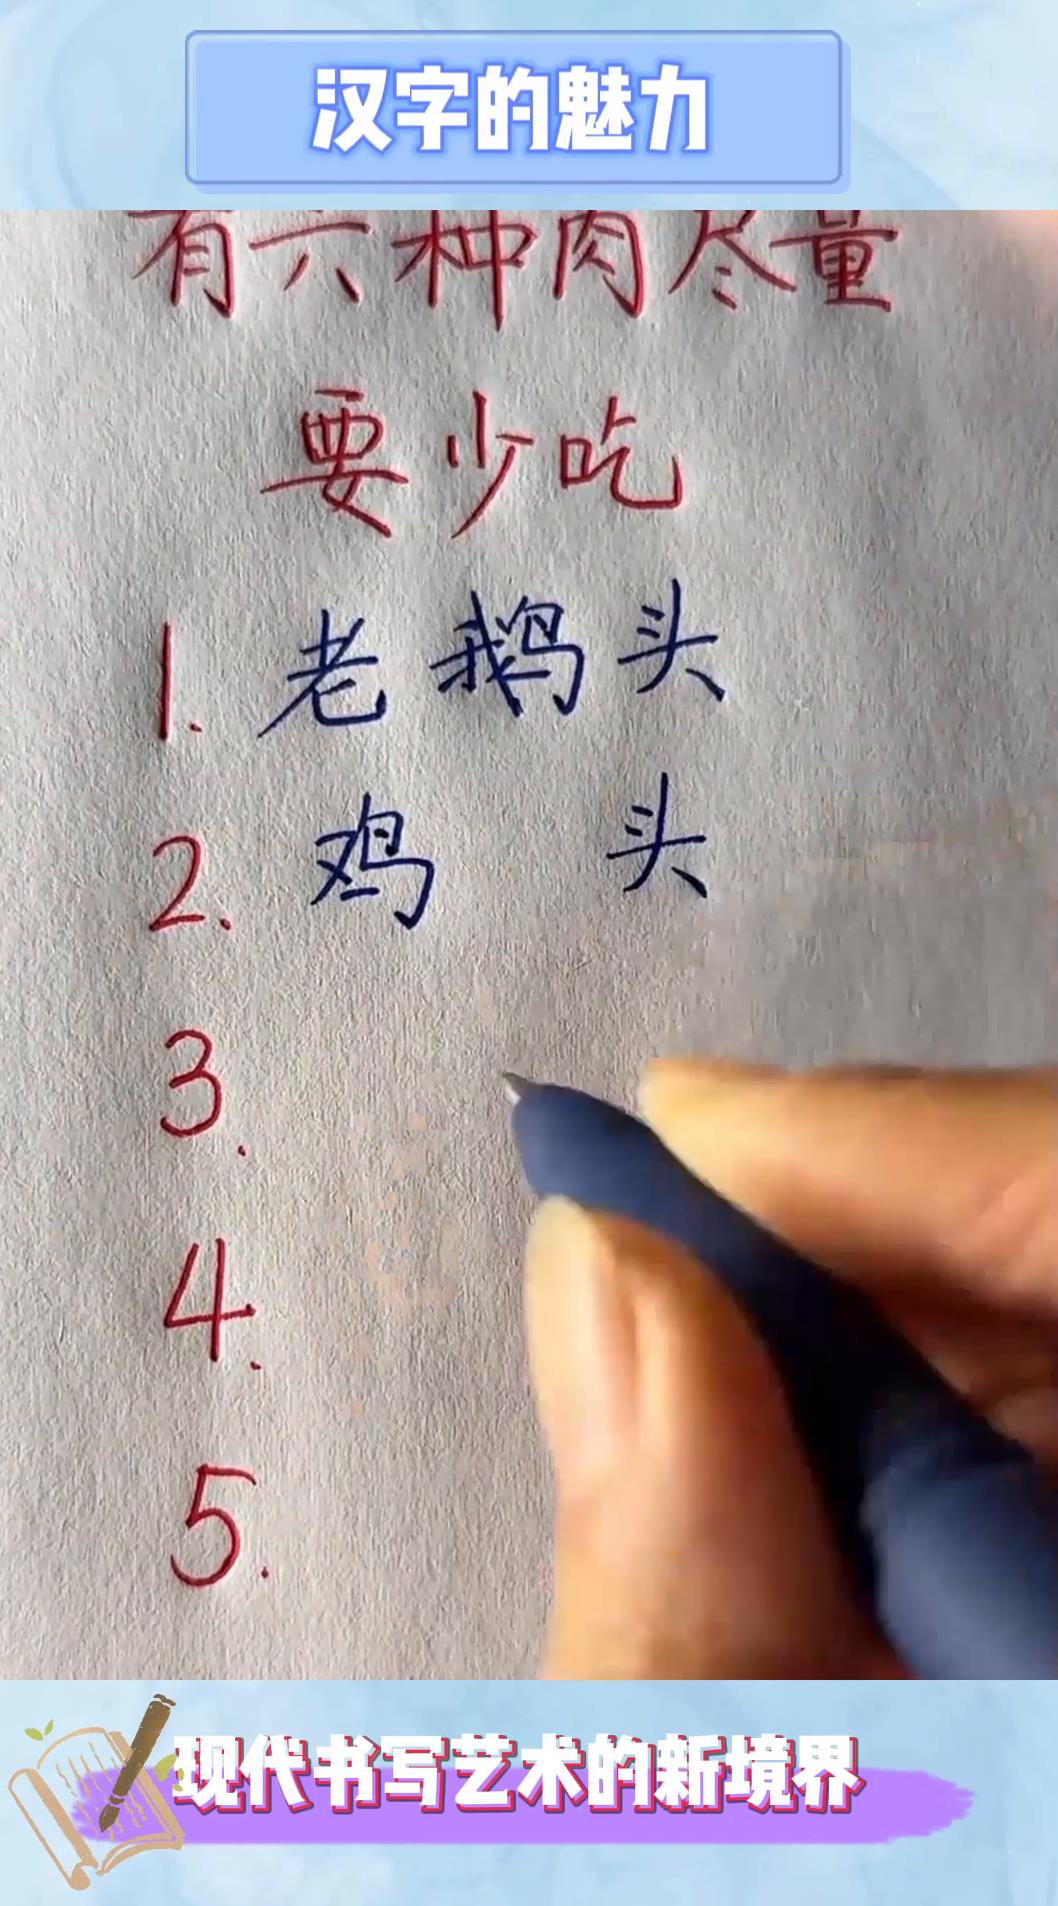 汉字的魅力
有六种肉尽量
要少吃
1. 老鹅头
2. 鸡 头
3.
4.
5.
现代书写艺术的新境界